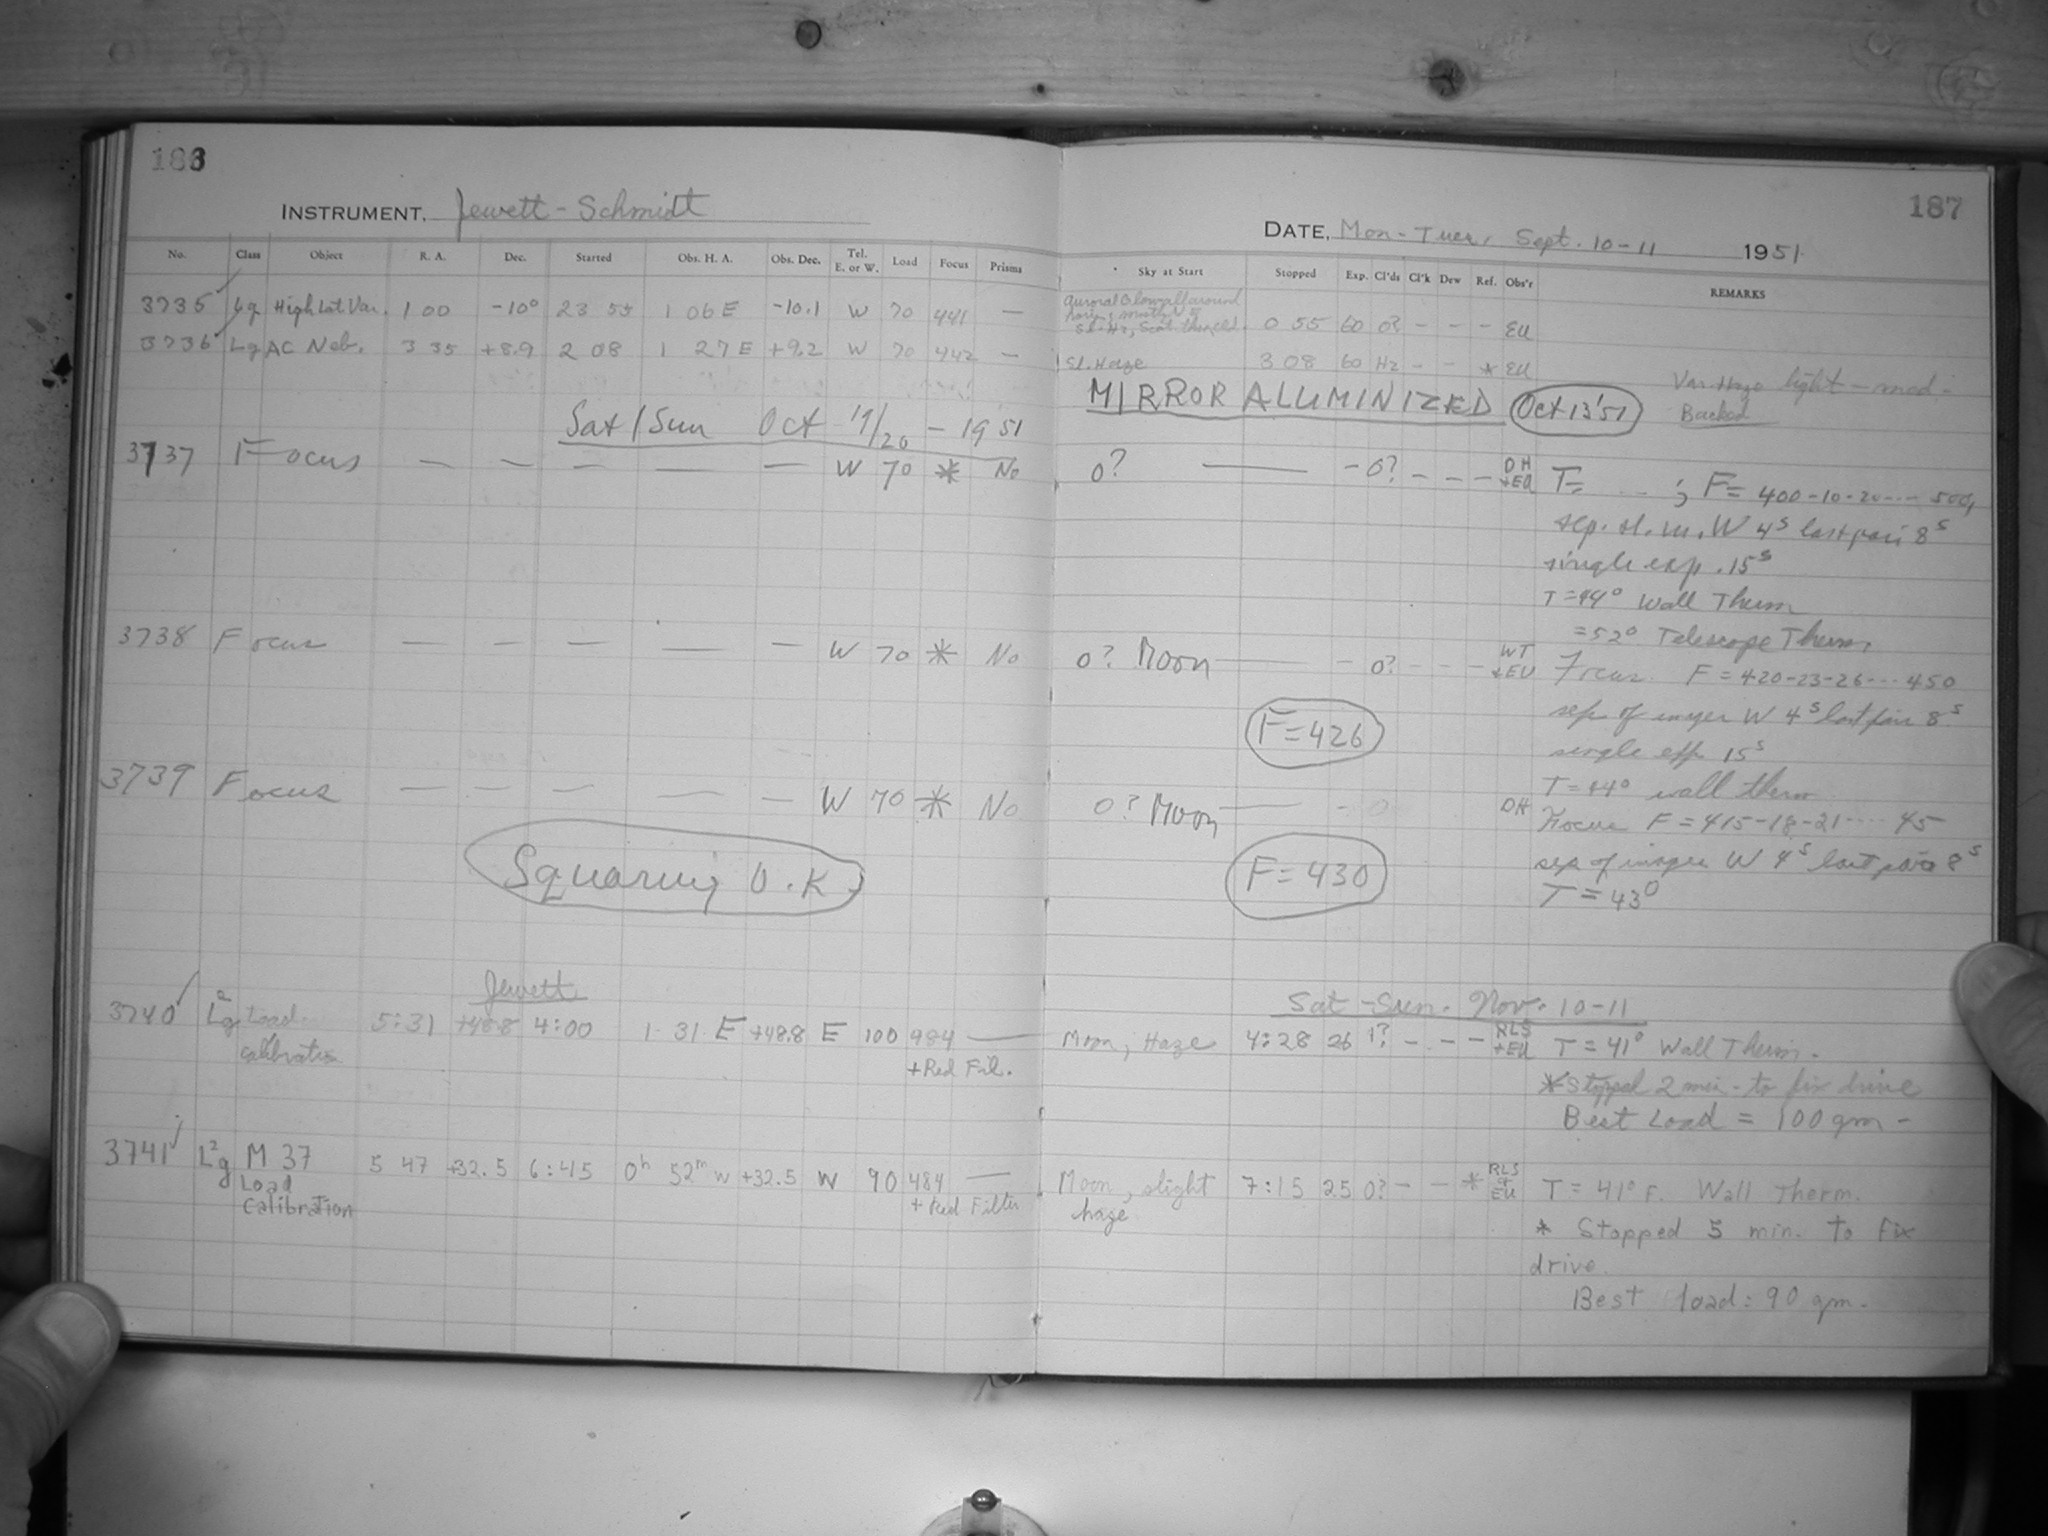 186
187
INSTRUMENT, Jewett-Schmidt
DATE, Mon-Tues, Sept. 10-11 1951
No. Class Object R. A. Dec. Started Obs. H. A. Obs. Dec. Tel. E. or W. Load Focus Prisms
Sky at Start Stopped Exp. Cl'ds Cl'k Dew Ref. Obs'r REMARKS
3735 Lg High Lat Var. 1 00 -10° 23 55 1 06 E -10.1 W 70 441 — 0 55 60 0? - - - EU
3736 Lg AC Neb. 3 35 +8.9 2 08 1 27 E +9.2 W 70 442 — Sl. Haze 3 08 60 Hz - - * EU
Var. Haze light - mod -
Backed
MIRROR ALUMINIZED Oct 13 '51
Sat/Sun Oct 19/20 - 1951
3737 Focus — — — — — W 70 * No 0? — - 0? - - - DH +EU T= ... ; F= 400-10-20--- 500,
W 4s last pair 8s
single exp. 15s
T=44° Wall Therm
=52° Telescope Therm.
3738 Focus — — — — — W 70 * No 0? Moon — - 0? - - - WT +EU Focus. F = 420-23-26--- 450
F=426
sep of images W 4s last pair 8s
single exp 15s
T=44° wall therm
3739 Focus — — — — — W 70 * No 0? Moon — - 0 DH Focus F = 415-18-21---- 45
Squaring O.K.
F=430
sep of images W 4s last pair 8s
T = 43°
Jewett
Sat-Sun. Nov. 10-11
3740 Lg2 Load calibration 5:31 +48.8 4:00 1 31 E +48.8 E 100 984 — Moon, Haze 4:28 26 1? - - - RLS +EU T = 41° Wall Therm.
+Red Fil.
*Stopped 2 min - to fix drive
Best Load = 100 gm -
3741 Lg2 M 37 5 47 +32.5 6:45 0h 52m W +32.5 W 90 484 — Moon, slight haze 7:15 25 0? - - * RLS + EU T = 41° F. Wall Therm.
Load
Calibration
+ Red Filter
* Stopped 5 min. to fix
drive.
Best load: 90 gm.